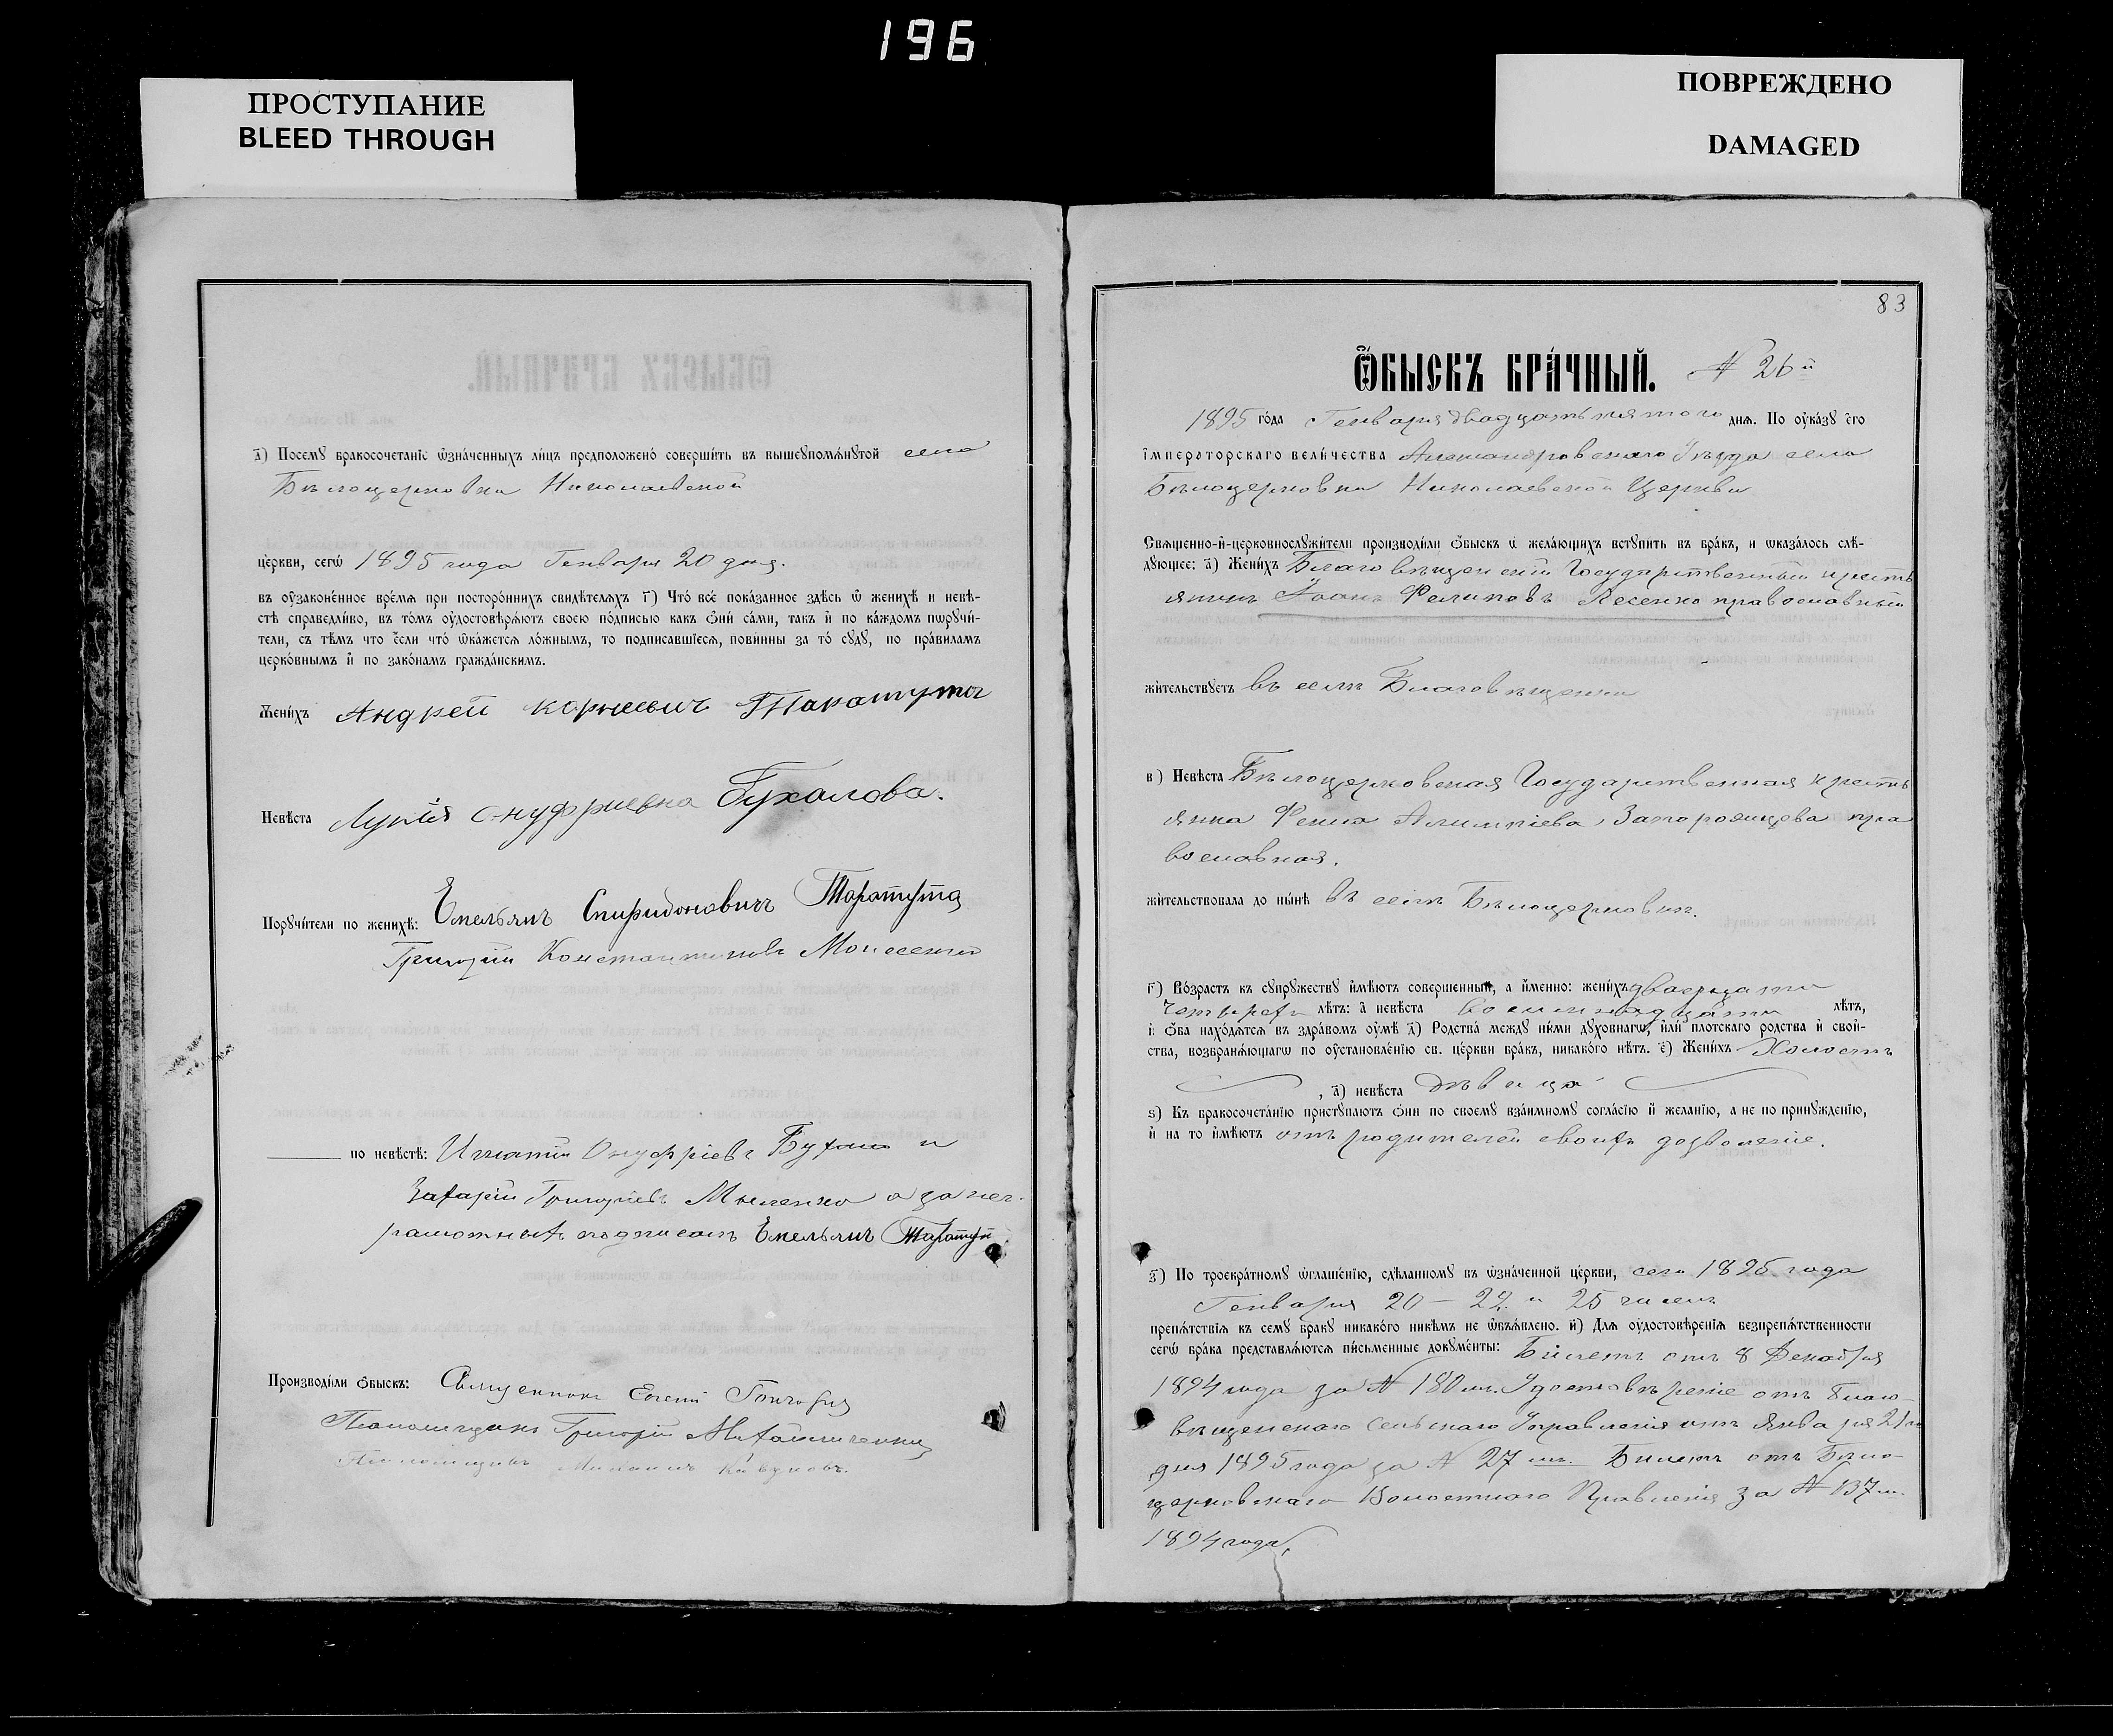 196
ПРОСТУПАНИЕ
BLEED THROUGH
ПОВРЕЖДЕНО
DAMAGED
з҃) Посемꙋ бракосочетаніе ѡзна́ченныхъ ли́цъ предположено̀ соверши́ть въ вышеꙋпомѧ́нꙋтой села
Бѣлоцерковки Николаевской
це́ркви, сегѡ̀ 1895 года Генваря 20 дня.
въ ᲂу҆зако́ненное вре́мѧ при посторо́ннихъ свидѣ́телѧхъ г҃) Что̀ всѐ пока́занное здѣ́сь ѡ҆ женихѣ̀ и невѣ́-
стѣ справедли́во, въ то́мъ ᲂу҆достовѣрѧ́ютъ своею по́дписью какъ ѻ҆нѝ са́ми, такъ и҆ по ка́ждомъ порꙋчи́-
тели, съ тѣ́мъ что є҆́сли что̀ ѡ҆ка́жетсѧ ло́жнымъ, то подписавшїесѧ, пови́нны за то̀ сꙋдꙋ̀, по пра́виламъ
церко́внымъ и҆ по зако́намъ гражда́нскимъ.
Жени́хъ Андрей корнеевич Таратута
Невѣ́ста Лукія Онуфриевна Бухалова.
Порꙋчи́тели по женихѣ̀: Емельянъ Спиридоновичъ Таратута
Григорій Константиновъ Моисеенко
по невѣ́стѣ: Игнатій Онуфріевъ Бухало и
Захарій Григоріевъ а за нег-
рамотныхъ подписалъ Емельянъ Таратут
Производи́ли ѻ҆́быскъ: Священникъ Евгеній
Псаломщикъ Григорій Михайличенко
Псаломщикъ Михаилъ
83
Ѻ҆́БЫСКЪ БРА́ЧНЫЙ. № 26й
1895 го́да Генваря двадцать пятого днѧ. По ᲂу҆ка́зꙋ є҆гѡ̀
і҆мператорскаго вели́чества Александровскаго Уѣзда села
Бѣлоцерковки Николаевской Церкви
Свѧще́нно-и҆-церковнослꙋжи́тели производи́ли ѻ҆́быскъ ѡ҆ жела́ющихъ встꙋпи́ть въ бра́къ, и ѡказа́лось слѣ́-
дꙋющее: а҃) Жени́хъ Благовѣщенскій Государственный кресть
янинъ Іоанъ Филиповъ Лесенко православный
жи́тельствꙋетъ въ селѣ Благовѣщенки
в҃) Невѣ́ста Бѣлоцерковская Государственная кресть
янка Фекла Алимпіева Запорожцева пра
вославная.
жи́тельствовала до ны́нѣ въ селѣ Бѣлоцерковкѣ.
г҃) Во́зрастъ къ сꙋпрꙋ́жествꙋ и҆мѣ́ютъ совершенный, а и҆́менно: жени́хъ двадцати
четырехъ лѣ́тъ: а҆ невѣ́ста восемнадцати лѣ́тъ,
и҆ ѻ҆́ба нахо́дѧтсѧ въ здра́вомъ ᲂу҆мѣ̀ д҃) Родства̀ междꙋ̀ ни́ми дꙋхо́внагѡ, и҆лѝ плотскаго родства и҆ свой-
ства, возбранѧ́ющагѡ по ᲂу҆становле́нїю св. це́ркви бра́къ, никако́го нѣ́тъ. є҃) Жени́хъ Холостъ
, а҆) невѣ́ста дѣвица
ѕ҃) Къ бракосочета́нїю пристꙋпа́ютъ ѻ҆нѝ по своемꙋ̀ взаи́мномꙋ согла́сїю и҆ жела́нїю, а не по принꙋжде́нїю,
и҆ на то и҆мѣ́ютъ отъ родителей своихъ дозволеніе.
з҃) По троекра́тномꙋ ѡ҆глаше́нїю, сдѣ́ланномꙋ въ ѡ҆зна́ченной це́ркви, сего 1895 года
Генваря 20 – 22 и 25 чиселъ
препѧ́тствїѧ къ семꙋ бра́кꙋ никако́го никѣ́мъ не ѡ҆бъѧ́влено. и҃) Длѧ ᲂу҆достовѣ́ренїѧ безпрепѧ́тственности
сегѡ̀ бра́ка представлѧ́ютсѧ пи́сьменные докꙋме́нты: Билетъ отъ 8 Декабря
1894 года за № 180м. Удостовѣреніе отъ Благо-
вѣщенскаго Сельскаго Управленія отъ Января 21го
дня 1895 года за № 27м. Билетъ отъ Бѣло-
церковскаго Волостнаго Правленія за № 137м.
1894 года,